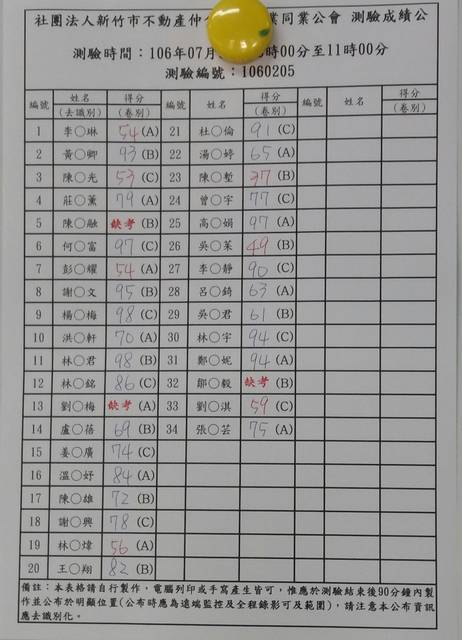 社團法人新竹市不動產仲 業同業公會 測驗成績公
測驗時間：106年07月 時00分至11時00分
測驗編號：1060205
編號 姓名(去識別) 得分(卷別) 編號 姓名 得分(卷別) 編號 姓名 得分(卷別)
1 李○琳 54 (A) 21 杜○倫 91 (C)
2 黃○卿 93 (B) 22 湯○婷 65 (A)
3 陳○光 53 (C) 23 陳○塹 37 (B)
4 莊○薰 79 (A) 24 曾○宇 77 (C)
5 陳○融 缺考 (B) 25 高○娟 97 (A)
6 何○富 97 (C) 26 吳○茱 49 (B)
7 彭○耀 54 (A) 27 李○靜 90 (C)
8 謝○文 95 (B) 28 呂○錡 63 (A)
9 楊○梅 98 (C) 29 吳○君 61 (B)
10 洪○軒 70 (A) 30 林○宇 94 (C)
11 林○君 98 (B) 31 鄭○妮 94 (A)
12 林○銘 86 (C) 32 鄒○毅 缺考 (B)
13 劉○梅 缺考 (A) 33 劉○淇 59 (C)
14 盧○蓓 69 (B) 34 張○芸 75 (A)
15 姜○廣 74 (C)
16 溫○妤 84 (A)
17 陳○雄 72 (B)
18 謝○興 78 (C)
19 林○煒 56 (A)
20 王○翔 82 (B)
備註：本表格請自行製作，電腦列印或手寫產生皆可，惟應於測驗結束後90分鐘內製
作並公布於明顯位置(公布時應為遠端監控及全程錄影可及範圍)，請注意本公布資訊
應去識別化。